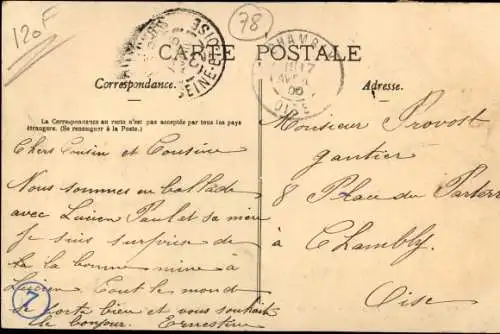 120F
78
CARTE POSTALE
SEINE-ET-OISE
CHAMBLY
OISE
Correspondance.
Adresse.
La Correspondance au recto n'est pas acceptée par tous les pays
étrangers. (Se renseigner à la Poste.)
Chers Cousin et Cousine
Nous sommes en ballade
avec Lucien Paul et sa mère
Je suis surprise de
la bonne mine à
Lucien. Tout le monde
se porte bien et vous souhaite
le bonjour. Ernestine
Monsieur Provost
gantier
8 Place du Parterre
à Chambly.
Oise
7